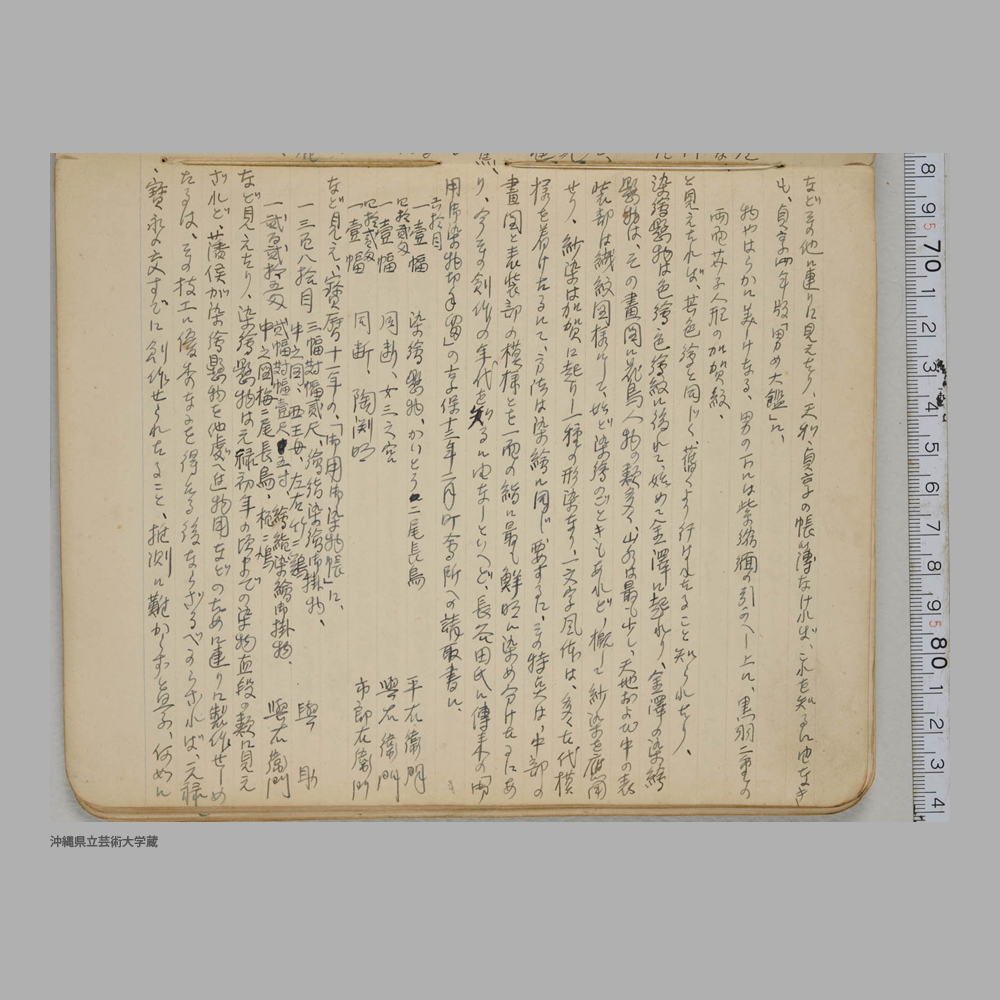 などその他に連りに見えたり、天和、貞享の帳簿なければ、これを知るに由なき
も、貞享四年版「男女大鑑」に、
物やはらかに美けなる、男の下には紫縮緬の引かへし上に、黒羽二重の
両面芥子人形の加賀紋、
と見えたれば、其色絵と同じく、舊くより行はれたること知られたり、
染繪懸物は色繪、色繪紋に後れて、始めて金澤に起れり、金澤の染繪
懸物は、その畫図に花鳥人物の類多く、山水は最も少し、天地および中の表
装部は織紋図様にして、殆ど染繪のごときもあれど、概して紗染を應用
せり、紗染は加賀に起りし一種の形染なり、一文字風帯は、多く古代模
様を着けたるにて、方法は染繪に同じ、要するに、その特長は、中部の
畫図と表装部の模様とを一面の絹に最も鮮明に染め分けたるにあ
り、今その創作の年代を知るに由なしといへど、長谷田氏に傳来の「御
用御染物切手留」の享保十三年二月町会所への請取書に、
六拾目
一壹幅 染繪懸物、かいとうニ尾長鳥 平右衛門
四拾弐匁
一壹幅 同断、女三之宮 與右衛門
四拾弐匁
一壹幅 同断、陶渕明 市郎右衛門
など見え、寳暦十一年の、「御用御染物帳」に、
一三百八拾目 三幅對幅弐尺、繪絹染繪御掛物、
中之図、西王母、左右竹ニ鶏 與助
一弐百弐拾五匁 弐幅對幅壹尺五寸、繪絹染繪御掛物、
中之図梅ニ尾長鳥、 與右衛門
など見えたり、染繪懸物は元禄初年の頃までの染物直段の類に見え
ざれど、藩侯が染繪懸物を他處へ進物用などのために連りに製作せしめ
たるは、その技工に優秀なるを得たる後ならざるべからざれば、元禄
、寳永の交すでに創作せられたること、推測に難からず、且又、何めに
沖縄県立芸術大学蔵